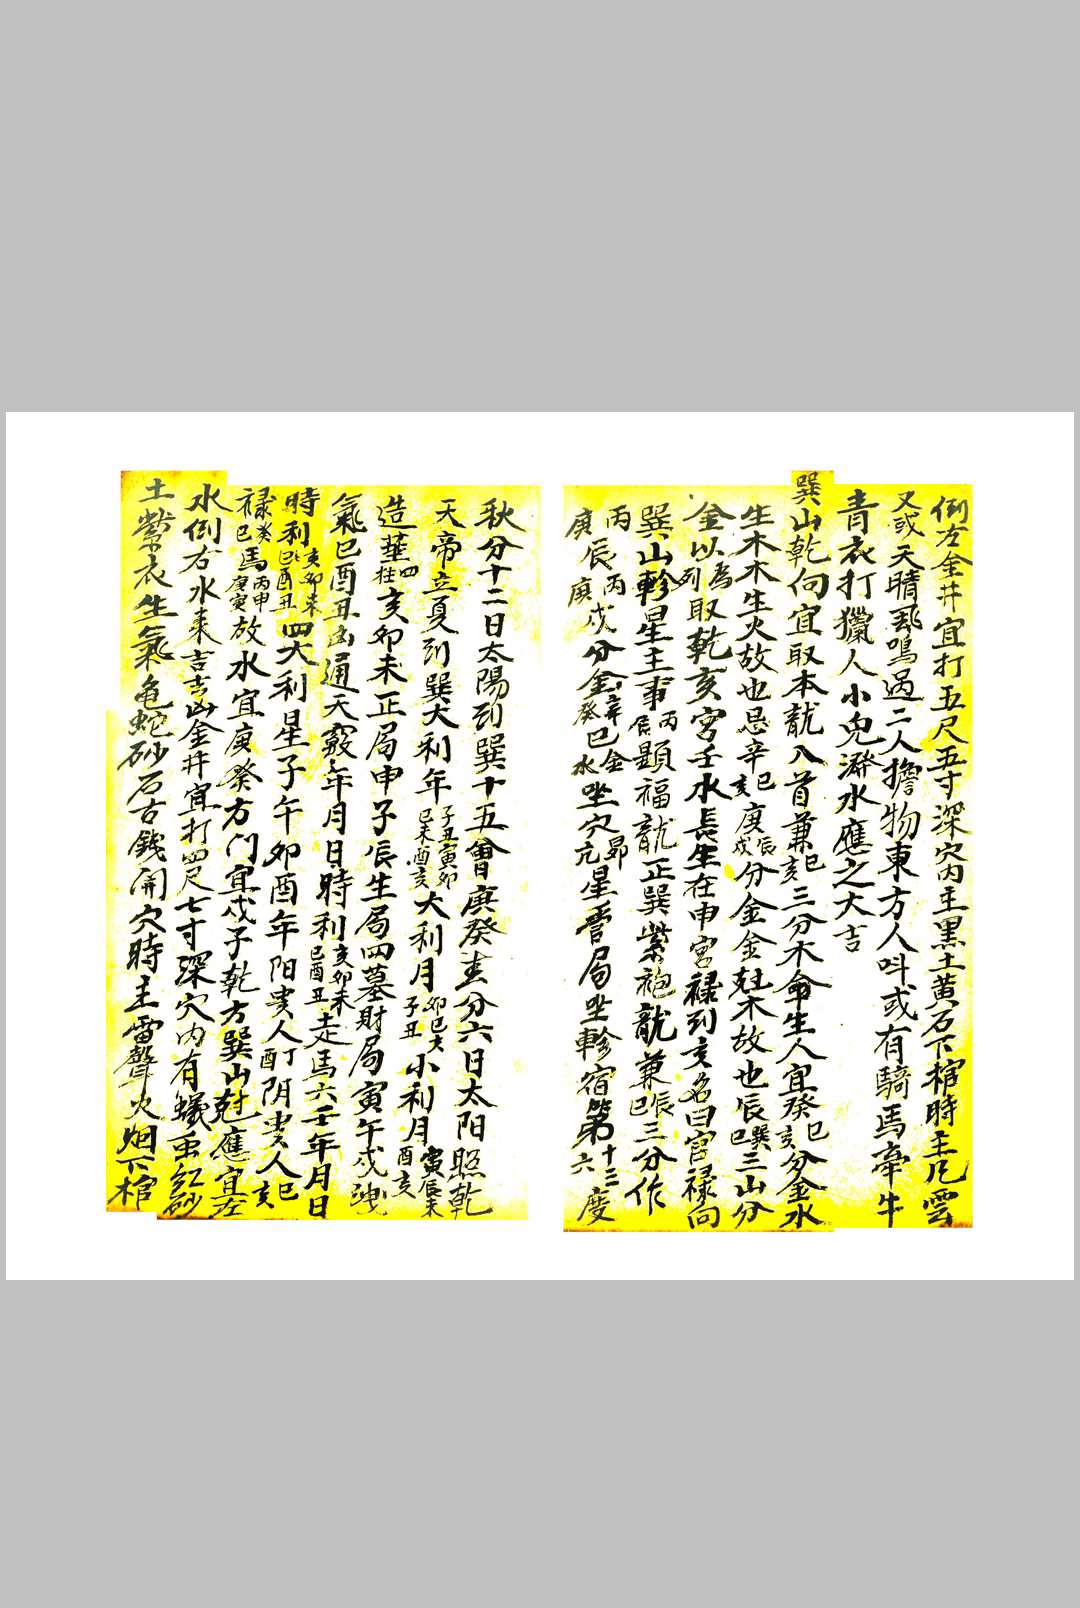 倒左金井宜打五尺五寸深穴内主黒土黄石下棺時主凡雲
又或天晴鳴過二人擔物東方人呌或有騎馬牽牛
青衣打獵人小兒潑水應之大吉
巽山乾向宜取本龍入首兼巳亥三分木命生人宜癸巳癸亥分金水
生木木生火故也忌辛巳辛亥庚辰庚戌分金金尅木故也辰巽巳三山分
金以為列取乾亥宮壬水長生在申宮禄到亥名曰宮禄向
巽山軫星主事丙辰顕福龍正巽紫袍龍兼辰巳三分作
丙辰丙戌分金辛巳金坐穴昴星
庚辰庚戌癸巳水亢局坐軫宿第十三六度
秋分十二日太陽到巽十五會庚癸春分六日太阳照乾
天帝立夏到巽大利年子丑寅卯巳未酉亥大利月卯巳子丑小利月寅辰未酉亥
造葬四柱亥卯未正局申子辰生局四墓財局寅午戌洩
氣巳酉丑凶通天竅年月日時利亥卯未巳酉丑走馬六壬年月日
時利亥卯未巳酉丑四大利星子午卯酉年阳贵人丁酉阴贵人巳亥
禄癸巳馬丙申庚寅放水宜庚癸方门宜戌子乾方巽山尅應宜左
水倒右水来吉吉山金井宜打四尺七寸深穴内有蟻虫红砂
土鶯衣生氣龟蛇砂石古銭開穴時主雷聲火烟下棺